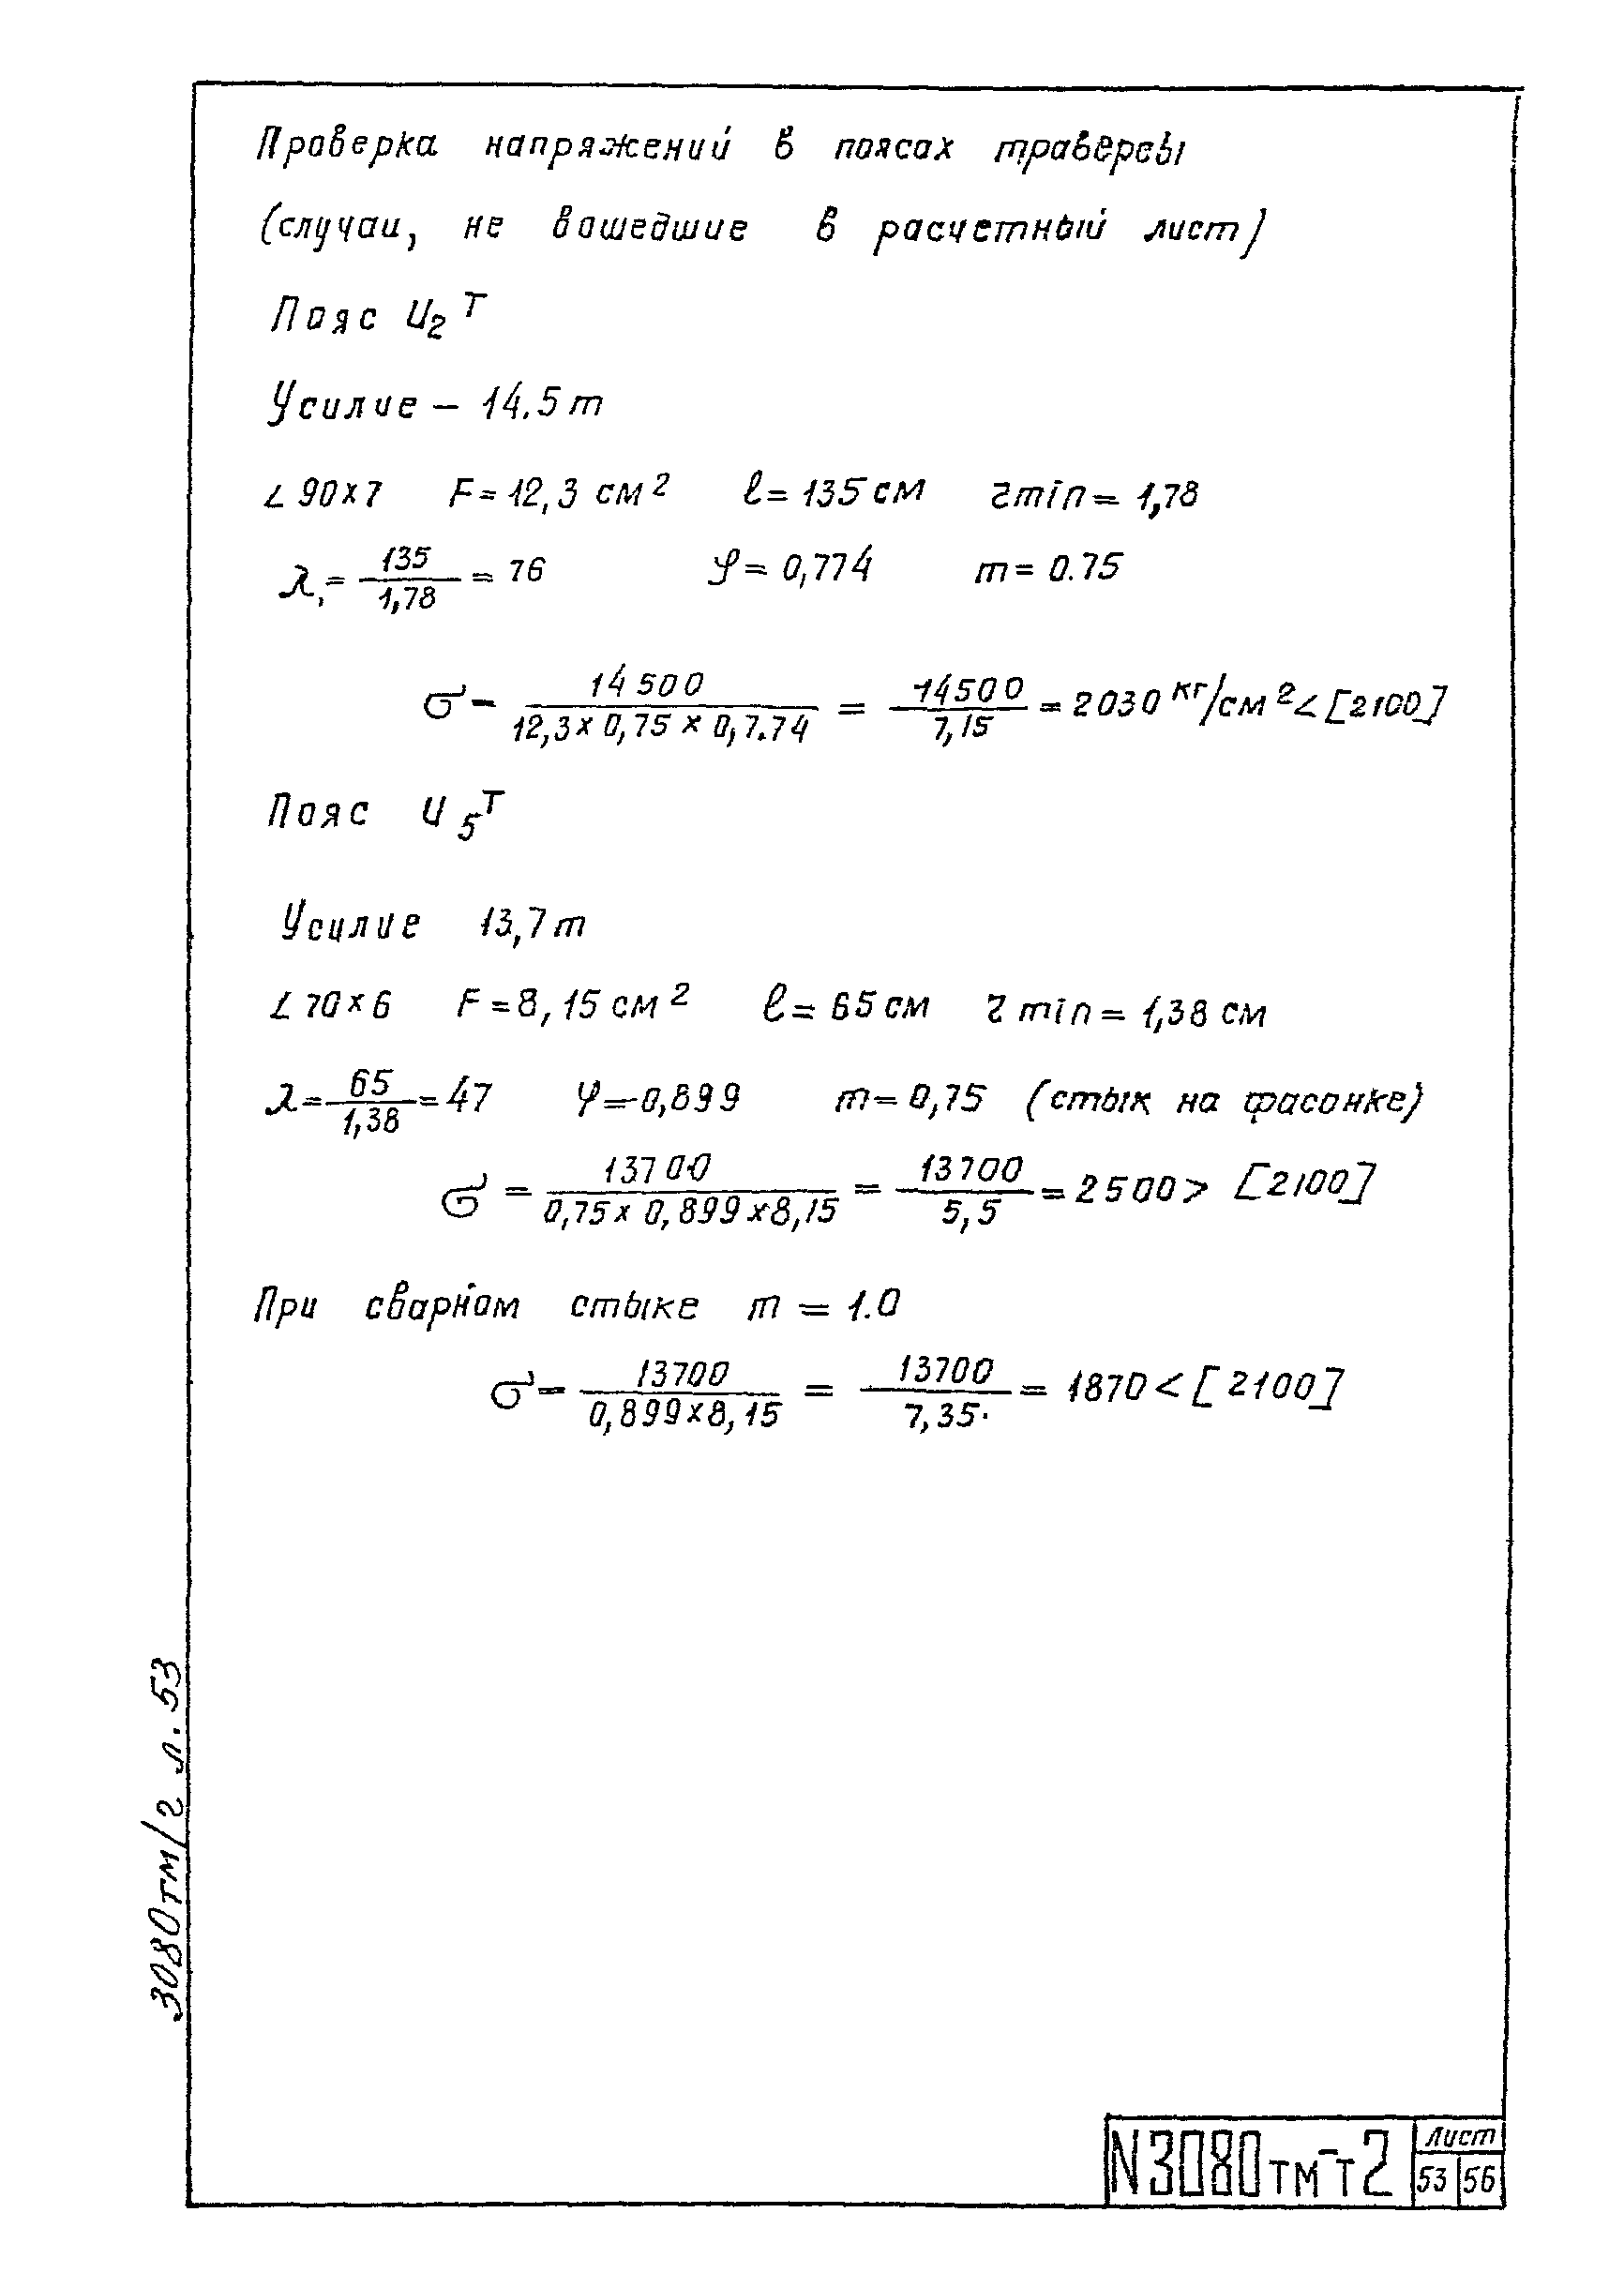 Проверка напряжений в поясах траверсы
(случаи, не вошедшие в расчетный лист)
Пояс U₂ᵀ
Усилие – 14.5 т
∠ 90×7 F = 12,3 см² ℓ = 135 см rmin = 1,78
λ₁ = 135/1,78 = 76 φ = 0,774 m = 0.75
σ = 14500/(12,3 × 0,75 × 0,7.74) = 14500/7,15 = 2030 кг/см² < [2100]
Пояс U₅ᵀ
Усилие 13,7 т
∠ 70×6 F = 8,15 см² ℓ = 65 см r min = 1,38 см
λ = 65/1,38 = 47 φ = 0,899 m = 0,75 (стык на фасонке)
σ = 13700/(0,75 × 0,899 × 8,15) = 13700/5,5 = 2500 > [2100]
При сварном стыке m = 1.0
σ = 13700/(0,899 × 8,15) = 13700/7,35 = 1870 < [2100]
3080тм/2 л. 53
N3080тм-т2
Лист
53 56